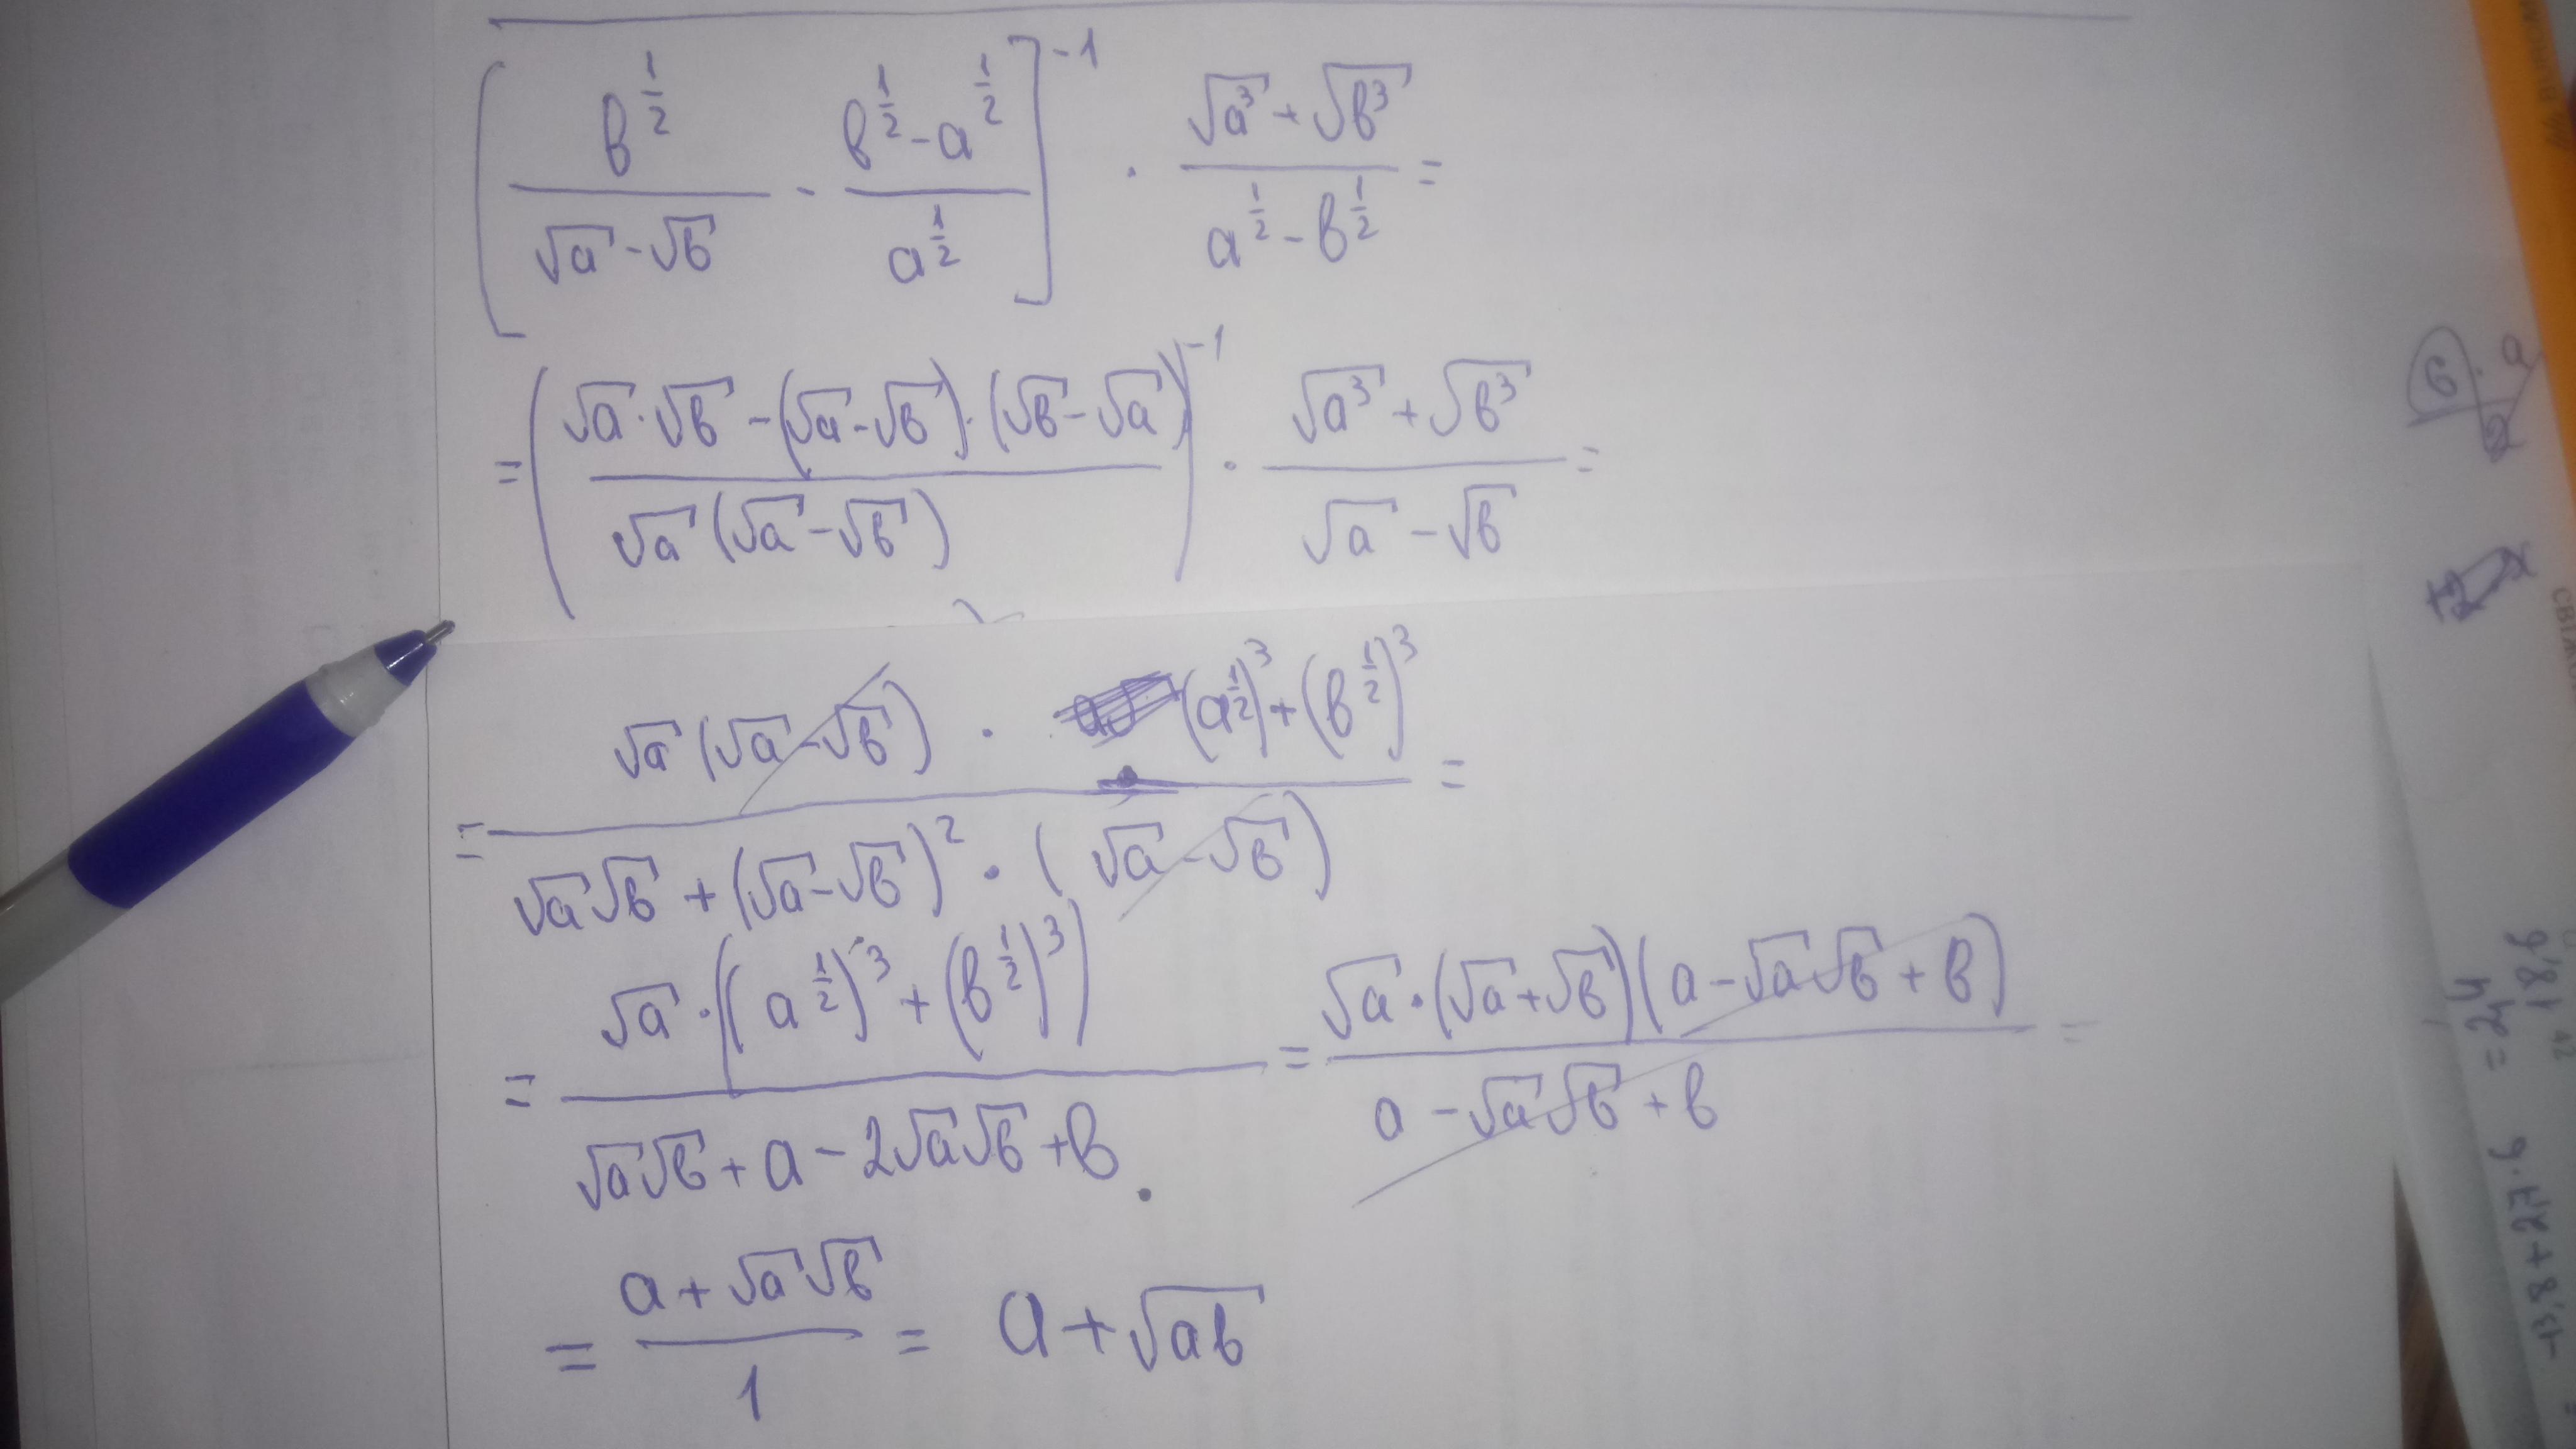 [b^{1/2}/(√a - √b) - (b^{1/2} - a^{1/2})/a^{1/2}]^{-1} · (√a³ + √b³)/(a^{1/2} - b^{1/2}) =
= ((√a · √b - (√a - √b) · (√b - √a))/(√a(√a - √b)))^{-1} · (√a³ + √b³)/(√a - √b) =
= (√a(√a - √b) · (a^{1/2})³ + (b^{1/2})³)/(√a√b + (√a - √b)² · (√a - √b)) =
= (√a · ((a^{1/2})³ + (b^{1/2})³))/(√a√b + a - 2√a√b + b) = (√a · (√a + √b)(a - √a√b + b))/(a - √a√b + b) =
= (a + √a√b)/1 = a + √ab